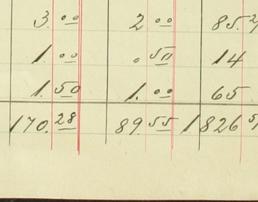 3.00 2 00 85.2
1.00 .50 14
1.50 1.00 65
170.28 89.55 1826 5